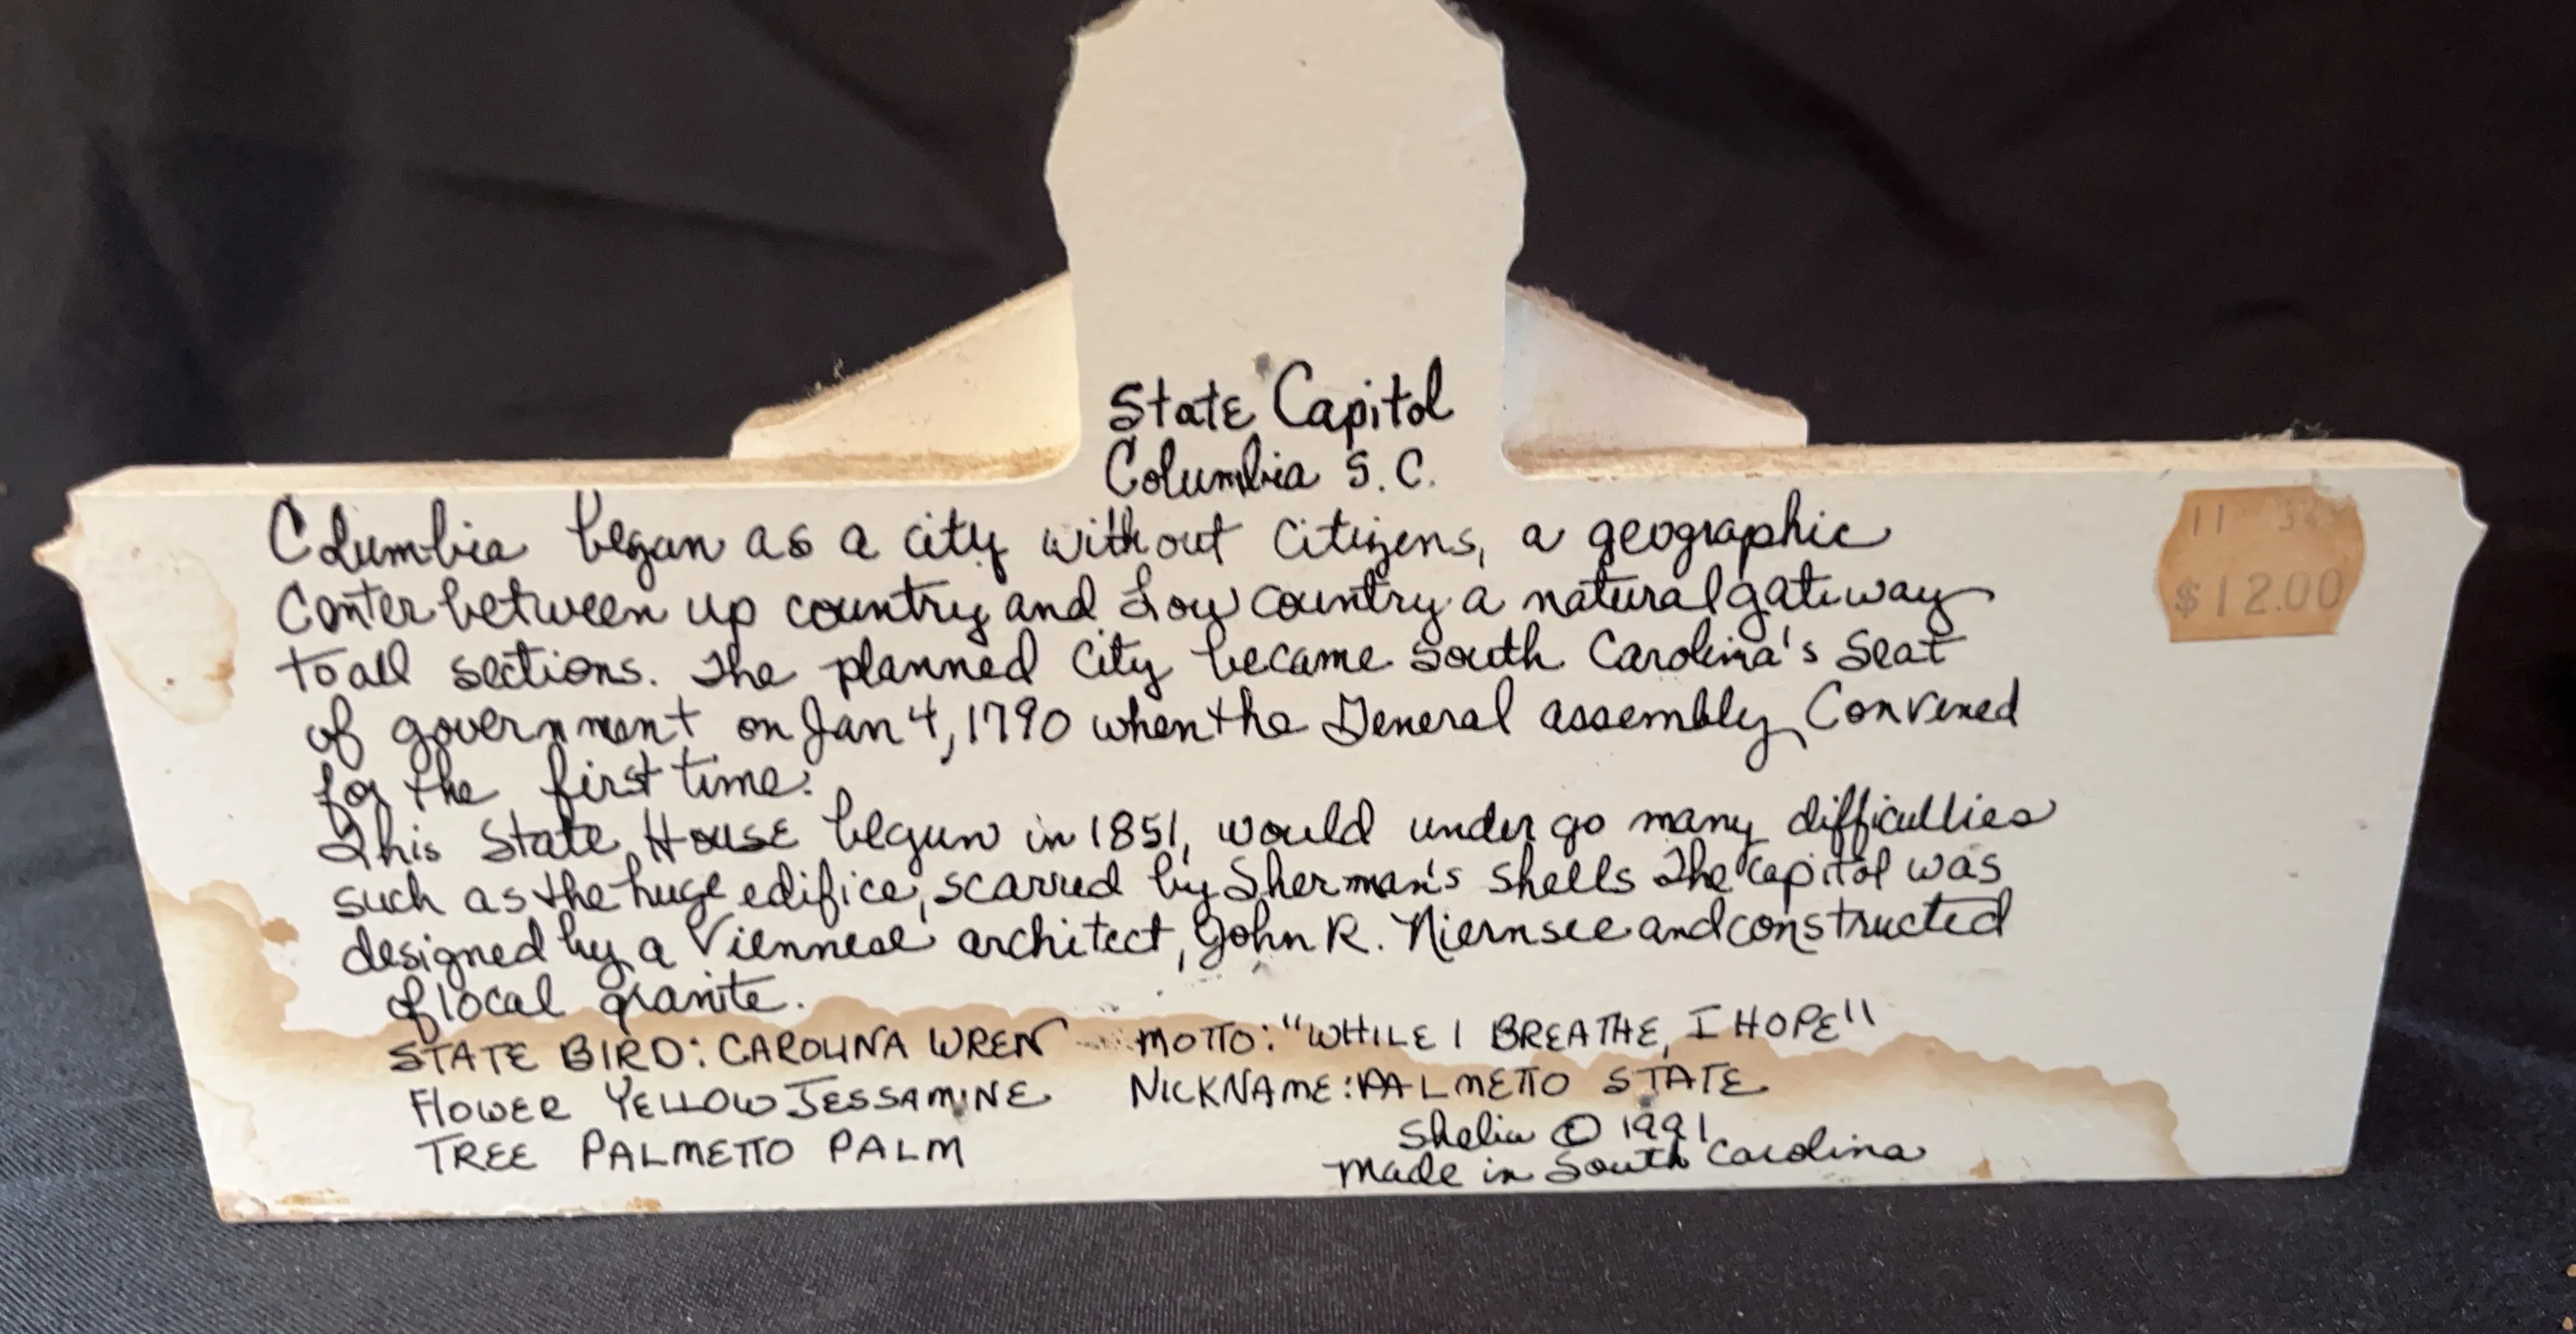 State Capitol
Columbia S.C.
Columbia began as a city without citizens, a geographic
Center between up country and Low country a natural gateway
to all sections. The planned City became South Carolina's Seat
of government on Jan 4, 1790 when the General assembly Convened
for the first time.
This State House begun in 1851, would under go many difficulties
such as the huge edifice, scarred by Sherman's shells The Capitol was
designed by a Viennese architect, John R. Niernsee and constructed
of local granite.
STATE BIRD: CAROLINA WREN MOTTO: "WHILE I BREATHE, I HOPE"
FLOWER YELLOW JESSAMINE NICKNAME: PALMETTO STATE
TREE PALMETTO PALM
Shelia © 1991
Made in South Carolina
11 34
$12.00